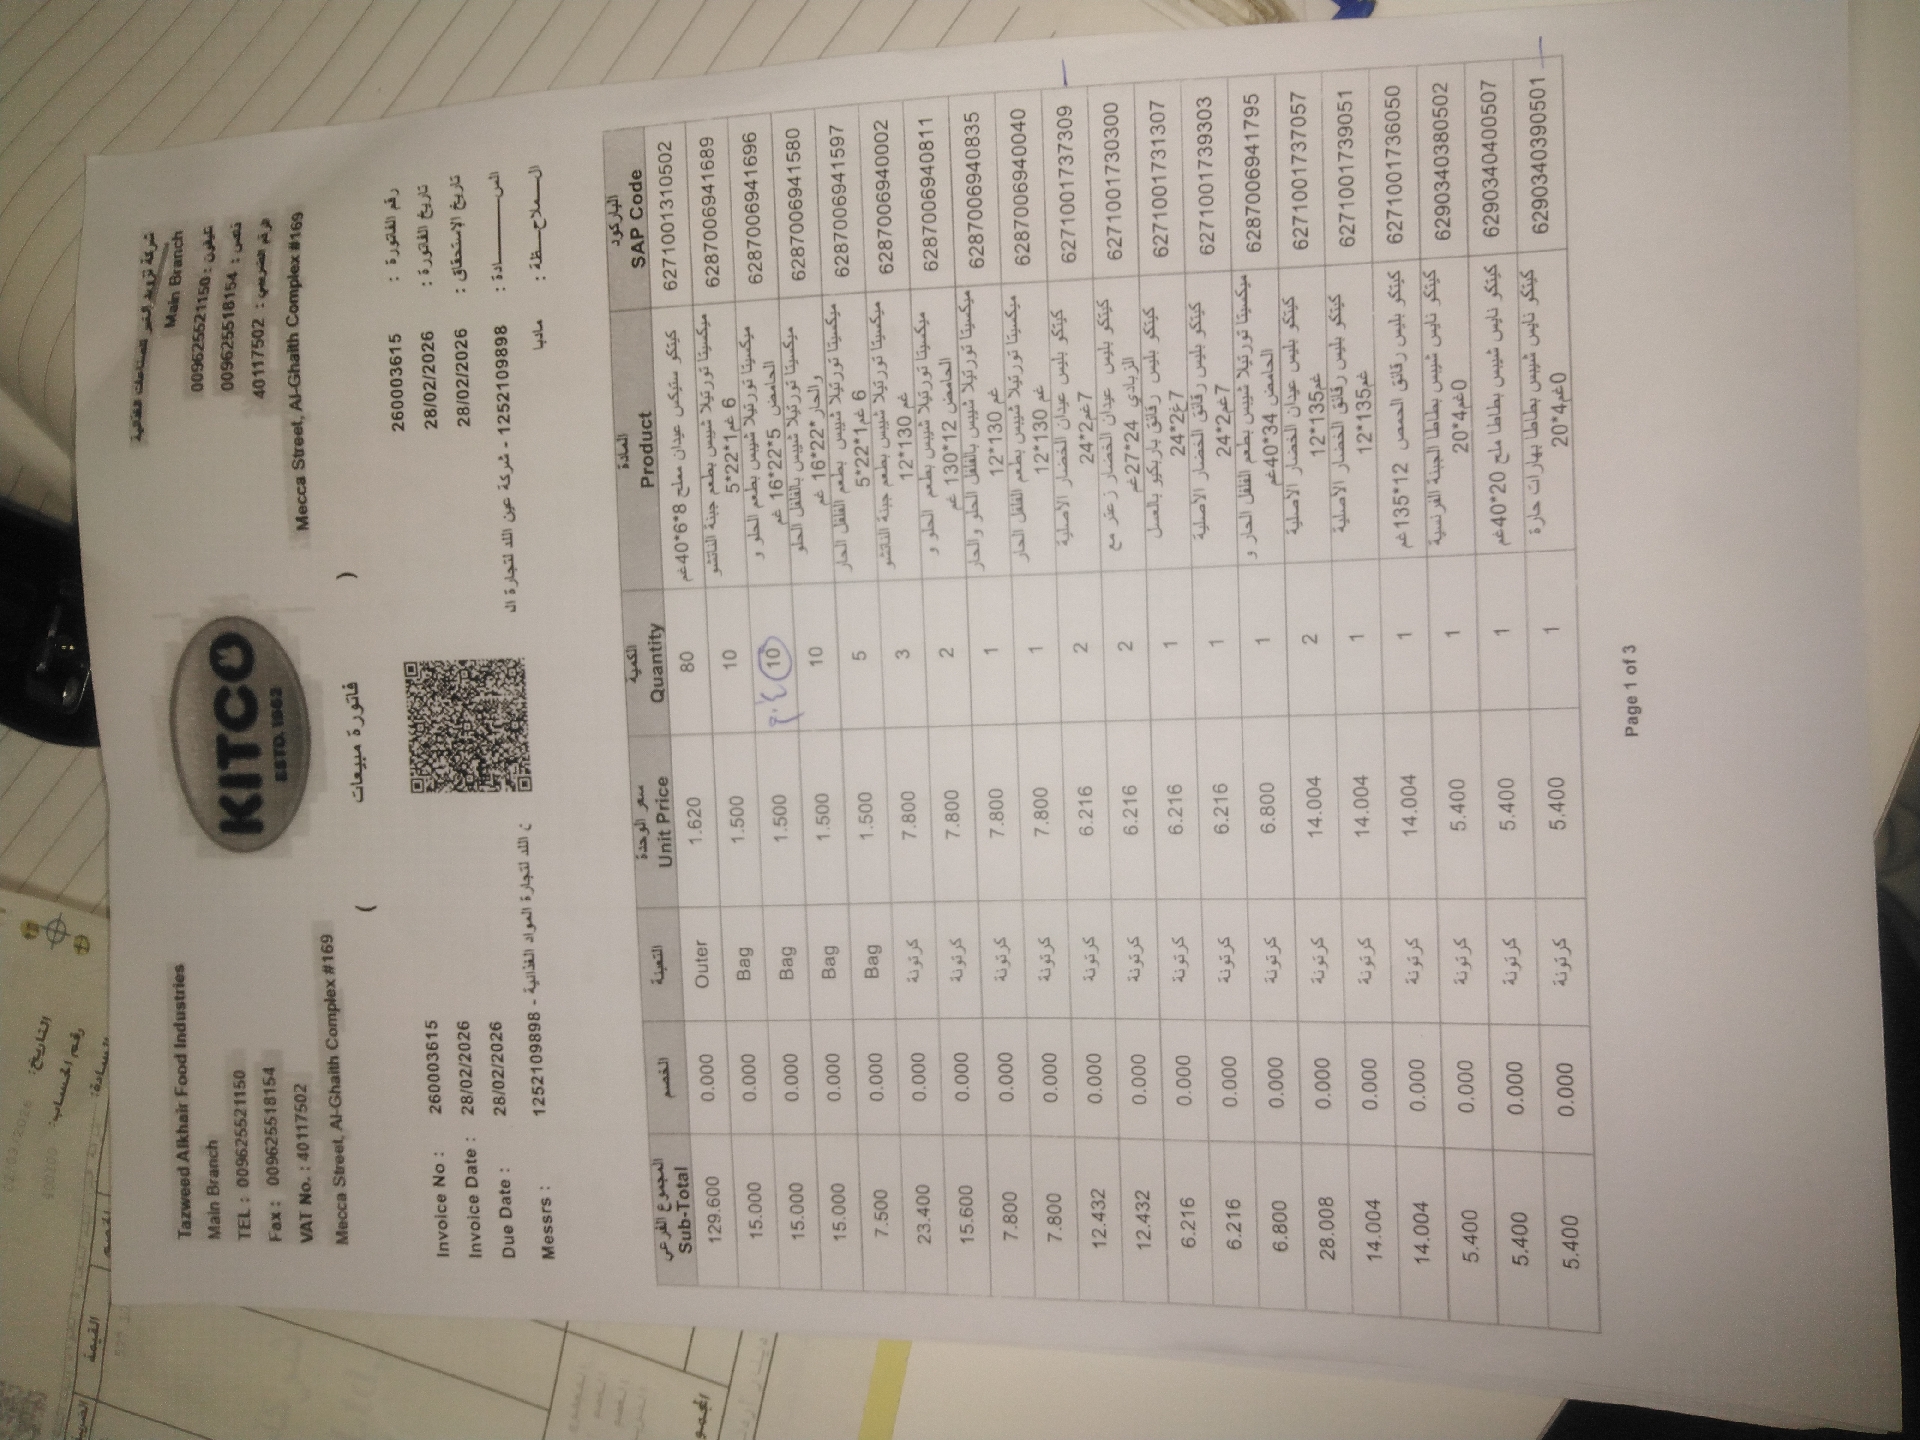 Tazweed Alkhair Food Industries
Main Branch
TEL : 0096265521150
Fax : 0096265518154
VAT No. : 40117502
Mecca Street, Al-Ghaith Complex #169
KITCO
ESTD. 1962
Main Branch
0096265521150 :
0096265518154 : فاكس
40117502 : رقم ضريبي
Mecca Street, Al-Ghaith Complex #169
( فاتورة مبيعات )
Invoice No : 260003615
Invoice Date : 28/02/2026
Due Date : 28/02/2026
Messrs : 1252109898 - ن الله لتجارة المواد الغذائية
رقم الفاتورة : 260003615
تاريخ الفاتورة : 28/02/2026
تاريخ الإستحقاق : 28/02/2026
الســـــــــادة : 1252109898 - شركة عين الله لتجارة ال
الـــملاحـــظة : مادبا
المجموع الفرعي الخصم التعبئة سعر الوحدة الكمية المادة الباركود
Sub-Total Unit Price Quantity Product SAP Code
129.600 0.000 Outer 1.620 80 كيتكو ستيكس عيدان مملح 8*6*40غم 6271001310502
15.000 0.000 Bag 1.500 10 ميكسيتا تورتيلا شيبس بطعم جبنة الناتشو 5*22*1غم 6 6287006941689
15.000 0.000 Bag 1.500 10 ميكسيتا تورتيلا شيبس بطعم الحلو و الحامض 5*22*16 غم 6287006941696
15.000 0.000 Bag 1.500 10 ميكسيتا تورتيلا شيبس بالفلفل الحلو والحار *22*16 غم 6287006941580
7.500 0.000 Bag 1.500 5 ميكسيتا تورتيلا شيبس بطعم الفلفل الحار 5*22*1غم 6 6287006941597
23.400 0.000 كرتونة 7.800 3 ميكسيتا تورتيلا شيبس بطعم جبنة الناتشو 12*130 غم 6287006940002
15.600 0.000 كرتونة 7.800 2 ميكسيتا تورتيلا شيبس بطعم الحلو و الحامض 12*130 غم 6287006940811
7.800 0.000 كرتونة 7.800 1 ميكسيتا تورتيلا شيبس بالفلفل الحلو والحار 12*130 غم 6287006940835
7.800 0.000 كرتونة 7.800 1 ميكسيتا تورتيلا شيبس بطعم الفلفل الحار 12*130 غم 6287006940040
12.432 0.000 كرتونة 6.216 2 كيتكو بليس عيدان الخضار الأصلية 24*2غم7 6271001737309
12.432 0.000 كرتونة 6.216 2 كيتكو بليس عيدان الخضار زعتر مع الزبادي 24*27غم 6271001730300
6.216 0.000 كرتونة 6.216 1 كيتكو بليس رقائق باربكيو بالعسل 24*2غ7 6271001731307
6.216 0.000 كرتونة 6.216 1 كيتكو بليس رقائق الخضار الأصلية 24*2غم7 6271001739303
6.800 0.000 كرتونة 6.800 1 ميكسيتا تورتيلا شيبس بطعم الفلفل الحار و الحامض 34*40غم 6287006941795
28.008 0.000 كرتونة 14.004 2 كيتكو بليس عيدان الخضار الأصلية 12*135غم 6271001737057
14.004 0.000 كرتونة 14.004 1 كيتكو بليس رقائق الخضار الأصلية 12*135غم 6271001739051
14.004 0.000 كرتونة 14.004 1 كيتكو بليس رقائق الحمص 12*135غم 6271001736050
5.400 0.000 كرتونة 5.400 1 كيتكو نايس شيبس بطاطا الجبنة الفرنسية 20*4غم0 6290340380502
5.400 0.000 كرتونة 5.400 1 كيتكو نايس شيبس بطاطا ملح 20*40غم 6290340400507
5.400 0.000 كرتونة 5.400 1 كيتكو نايس شيبس بطاطا بهارات حارة 20*4غم0 6290340390501
Page 1 of 3
التاريخ:
رقم الحساب:
القيمة